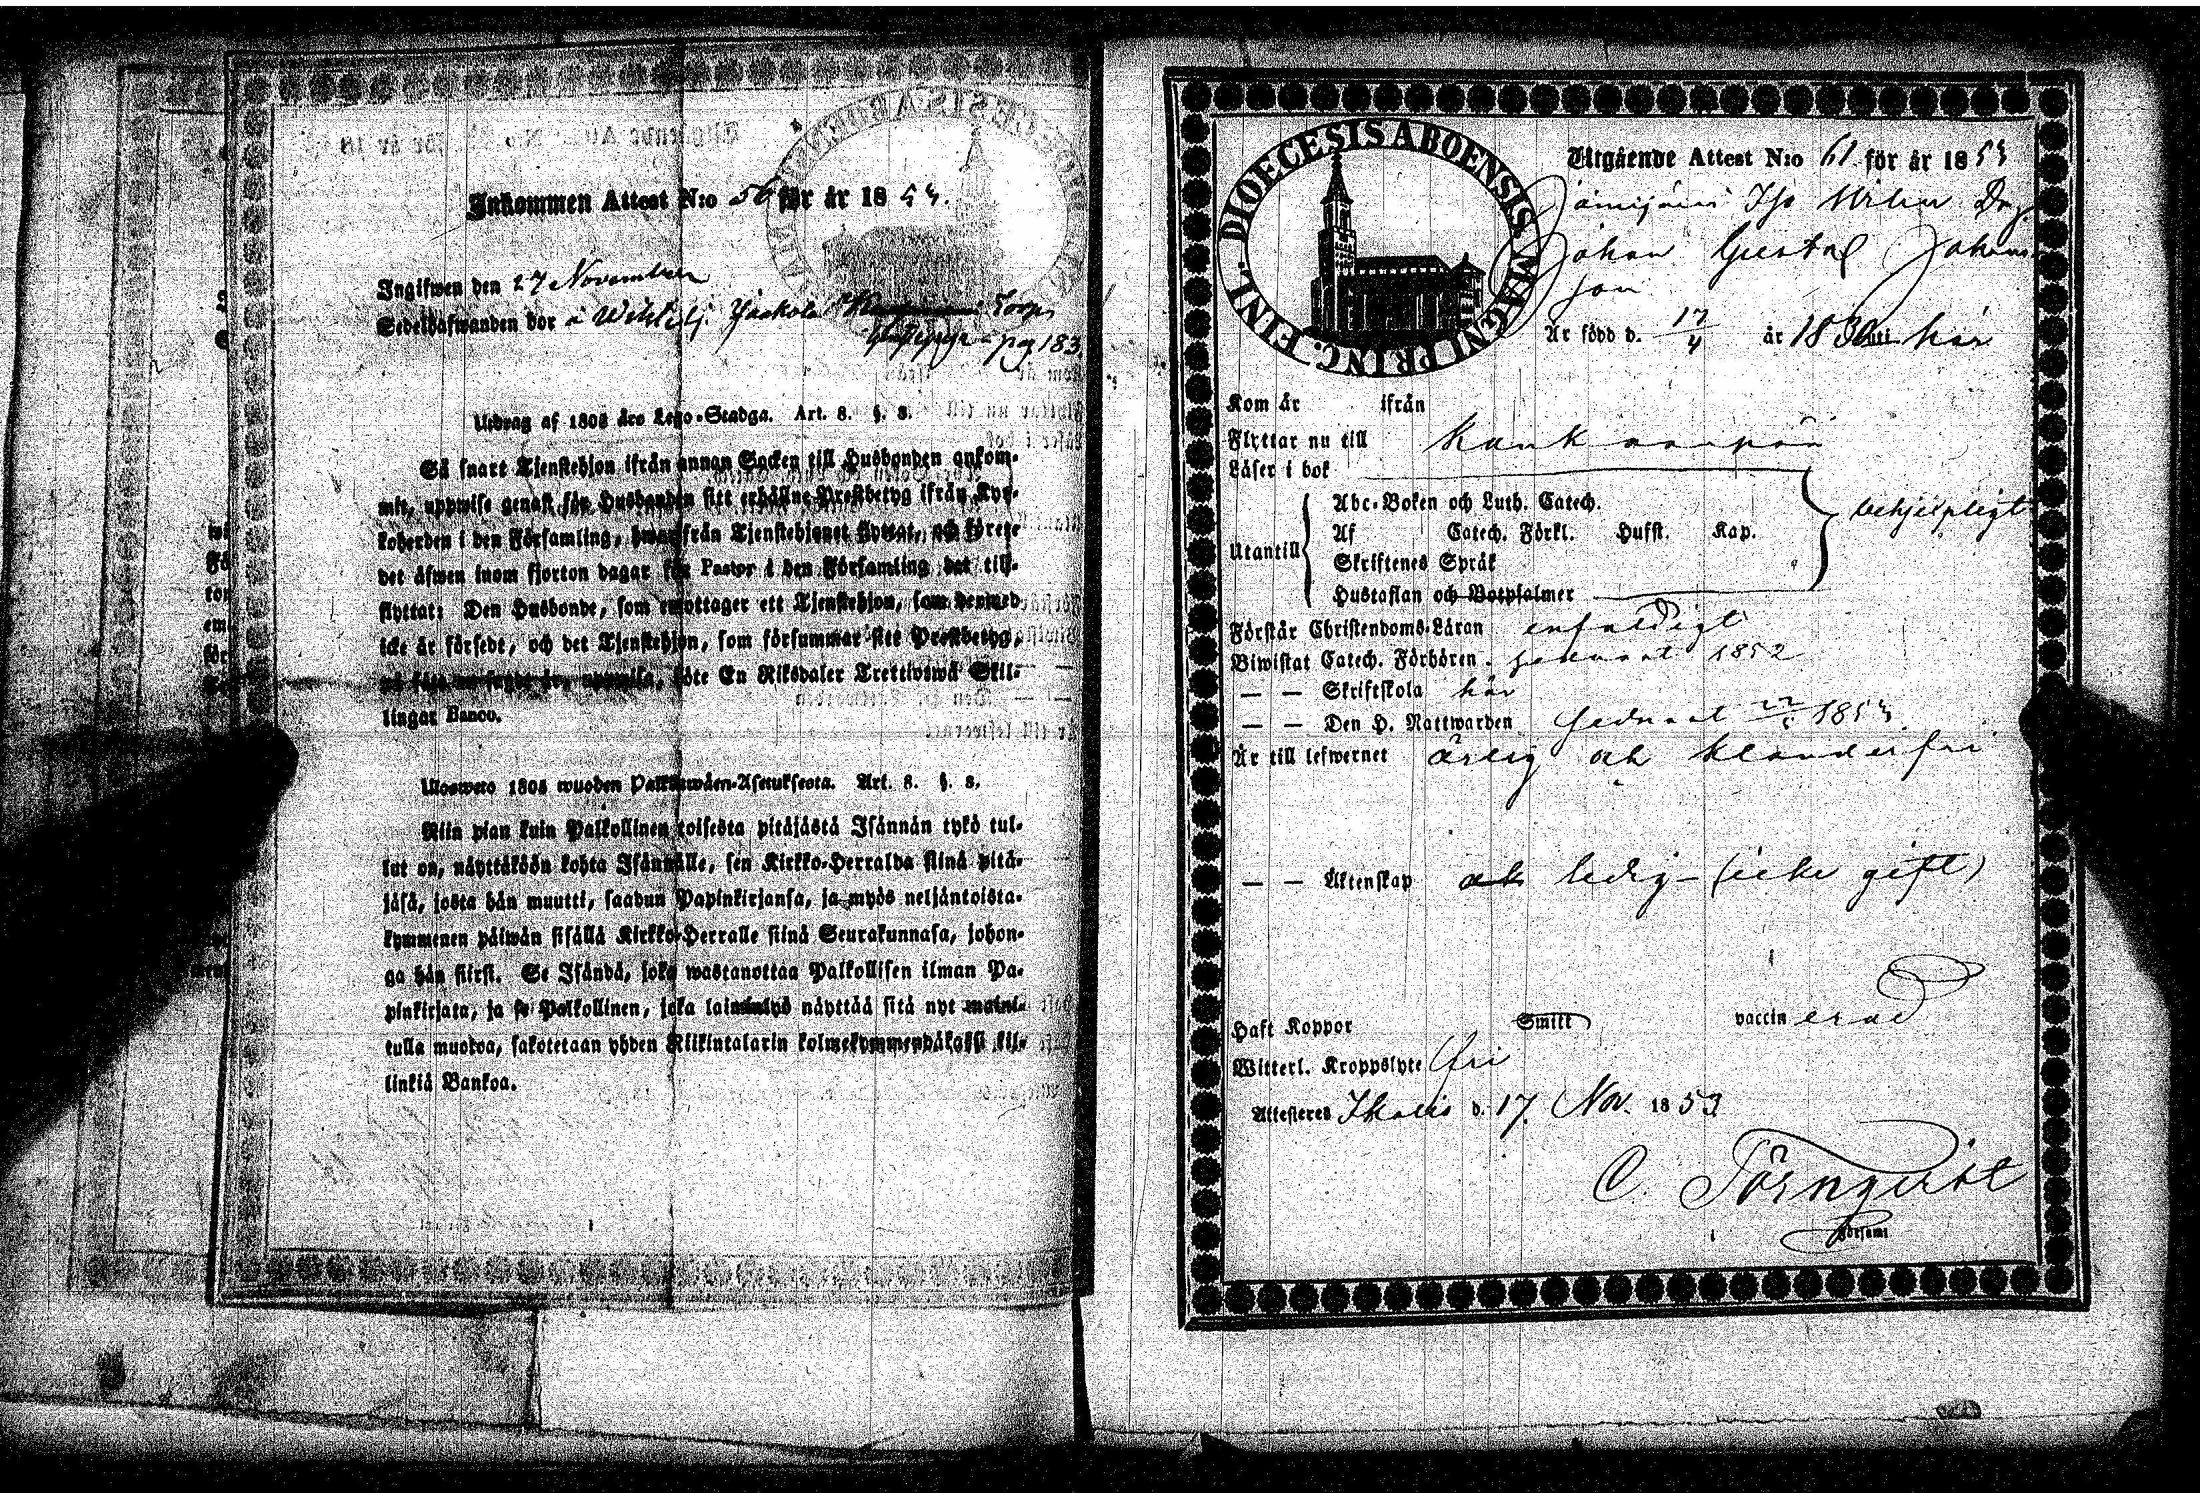 Inkommen Attest N:o 56 för år 1853.
Ingifwen den 27 November
Sedelhafwanden bor à
pag 183.
Utdrag af 1805 års Lego-Stadga. Art. 8. §. 8.
Så snart Tjenstehjon ifrån annan Socken till Husbonden ankom-
mit, uppwise genast för Husbonden sitt erhållne Prestbetyg ifrån Kyr-
koherden i den Församling, hwarifrån Tjenstehjonet flyttat, och förete
det äfwen inom fjorton dagar för Pastor i den Församling det till-
flyttat: Den Husbonde, som emottager ett Tjenstehjon, som dermed
icke är försedt, och det Tjenstehjon, som försummar sitt Prestbetyg,
på sätt nu sagdt är, uppwisa, böte En Riksdaler Trettiotwå Skil-
lingar Banco.
Ulosweto 1805 wuoden Palkkawäen-Asetuksesta. Art. 8. §. 8.
Niin pian kuin Palkollinen toisesta pitäjästä Isännän tykö tul-
lut on, näyttäköön kohta Isännälle, sen Kirkko-Herralda siinä pitä-
jäsä, josta hän muutti, saadun Papinkirjansa, ja myös neljäntoista-
kymmenen päiwän sisällä Kirkko-Herralle siinä Seurakunnasa, johon-
ga hän siirsi. Se Isändä, joka wastanottaa Palkollisen ilman Pa-
pinkirjata, ja se Palkollinen, joka laiminlyö näyttää sitä nyt maini-
tulla muotoa, sakotetaan yhden Riikintalarin kolmekymmenpäkaksi kil-
linkiä Bankoa.
DIOECESIS ABOENSIS MAGNI PRINC. FINL.
Utgående Attest N:o 61 för år 1853
Johan Gustaf Johans
son
Är född d. 17/4 år 1830 uti här
Kom år ifrån
Flyttar nu till Kankaanpää
Läser i bok
Utantill
Abc-Boken och Luth. Catech.
Af Catech. Förkl. Hufst. Kap.
Skriftenes Språk
Hustaflan och Botpsalmer
behjelpligt
Förstår Christendoms-Läran enfaldigt
Biwistat Catech. Förhören 1852
— — Skriftskola här
— — Den H. Nattwarden 1853
Är till lefwernet ärlig och klanderfri
— — Äktenskap och ledig – (icke gift)
Haft Koppor Smitt vaccin erad
Witterl. Kroppslyte fri
Attesteras Ikalis d. 17 Nov. 1853
C. Törnqvist